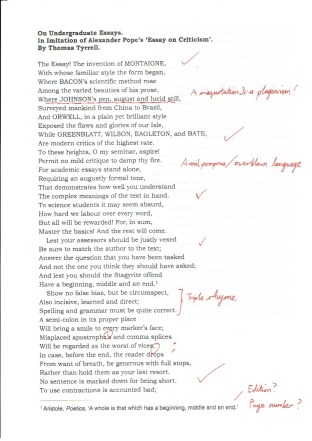 On Undergraduate Essays.
In Imitation of Alexander Pope's 'Essay on Criticism'.
By Thomas Tyrrell.
The Essay! The invention of MONTAIGNE,
With whose familiar style the form began,
Where BACON's scientific method rose
Among the varied beauties of his prose,
Where JOHNSON's pen, august and lucid still,
Surveyed mankind from China to Brazil,
And ORWELL, in a plain yet brilliant style
Exposed the flaws and glories of our Isle,
While GREENBLATT, WILSON, EAGLETON, and BATE,
Are modern critics of the highest rate.
To these heights, O my seminar, aspire!
Permit no mild critique to damp thy fire.
For academic essays stand alone,
Requiring an augustly formal tone,
That demonstrates how well you understand
The complex meanings of the text in hand.
To science students it may seem absurd,
How hard we labour over every word,
But all will be rewarded! For, in sum,
Master the basics! And the rest will come.
Lest your assessors should be justly vexed
Be sure to match the author to the text;
Answer the question that you have been tasked
And not the one you think they should have asked;
And lest you should the Stagyrite offend
Have a beginning, middle and an end.¹
Show no false bias, but be circumspect,
Also incisive, learned and direct;
Spelling and grammar must be quite correct.
A semi-colon in its proper place
Will bring a smile to every marker's face;
Misplaced apostrophe's and comma splices
Will be regarded as the worst of vices,
In case, before the end, the reader drops
From want of breath, be generous with full stops,
Rather than hold them as your last resort.
No sentence is marked down for being short.
To use contractions is accounted bad;
¹ Aristotle, Poetics, 'A whole is that which has a beginning, middle and an end.'
A misquotation is a plagiarism!
Avoid pompous/overblown language
Triple rhyme
;
Edition?
Page number?